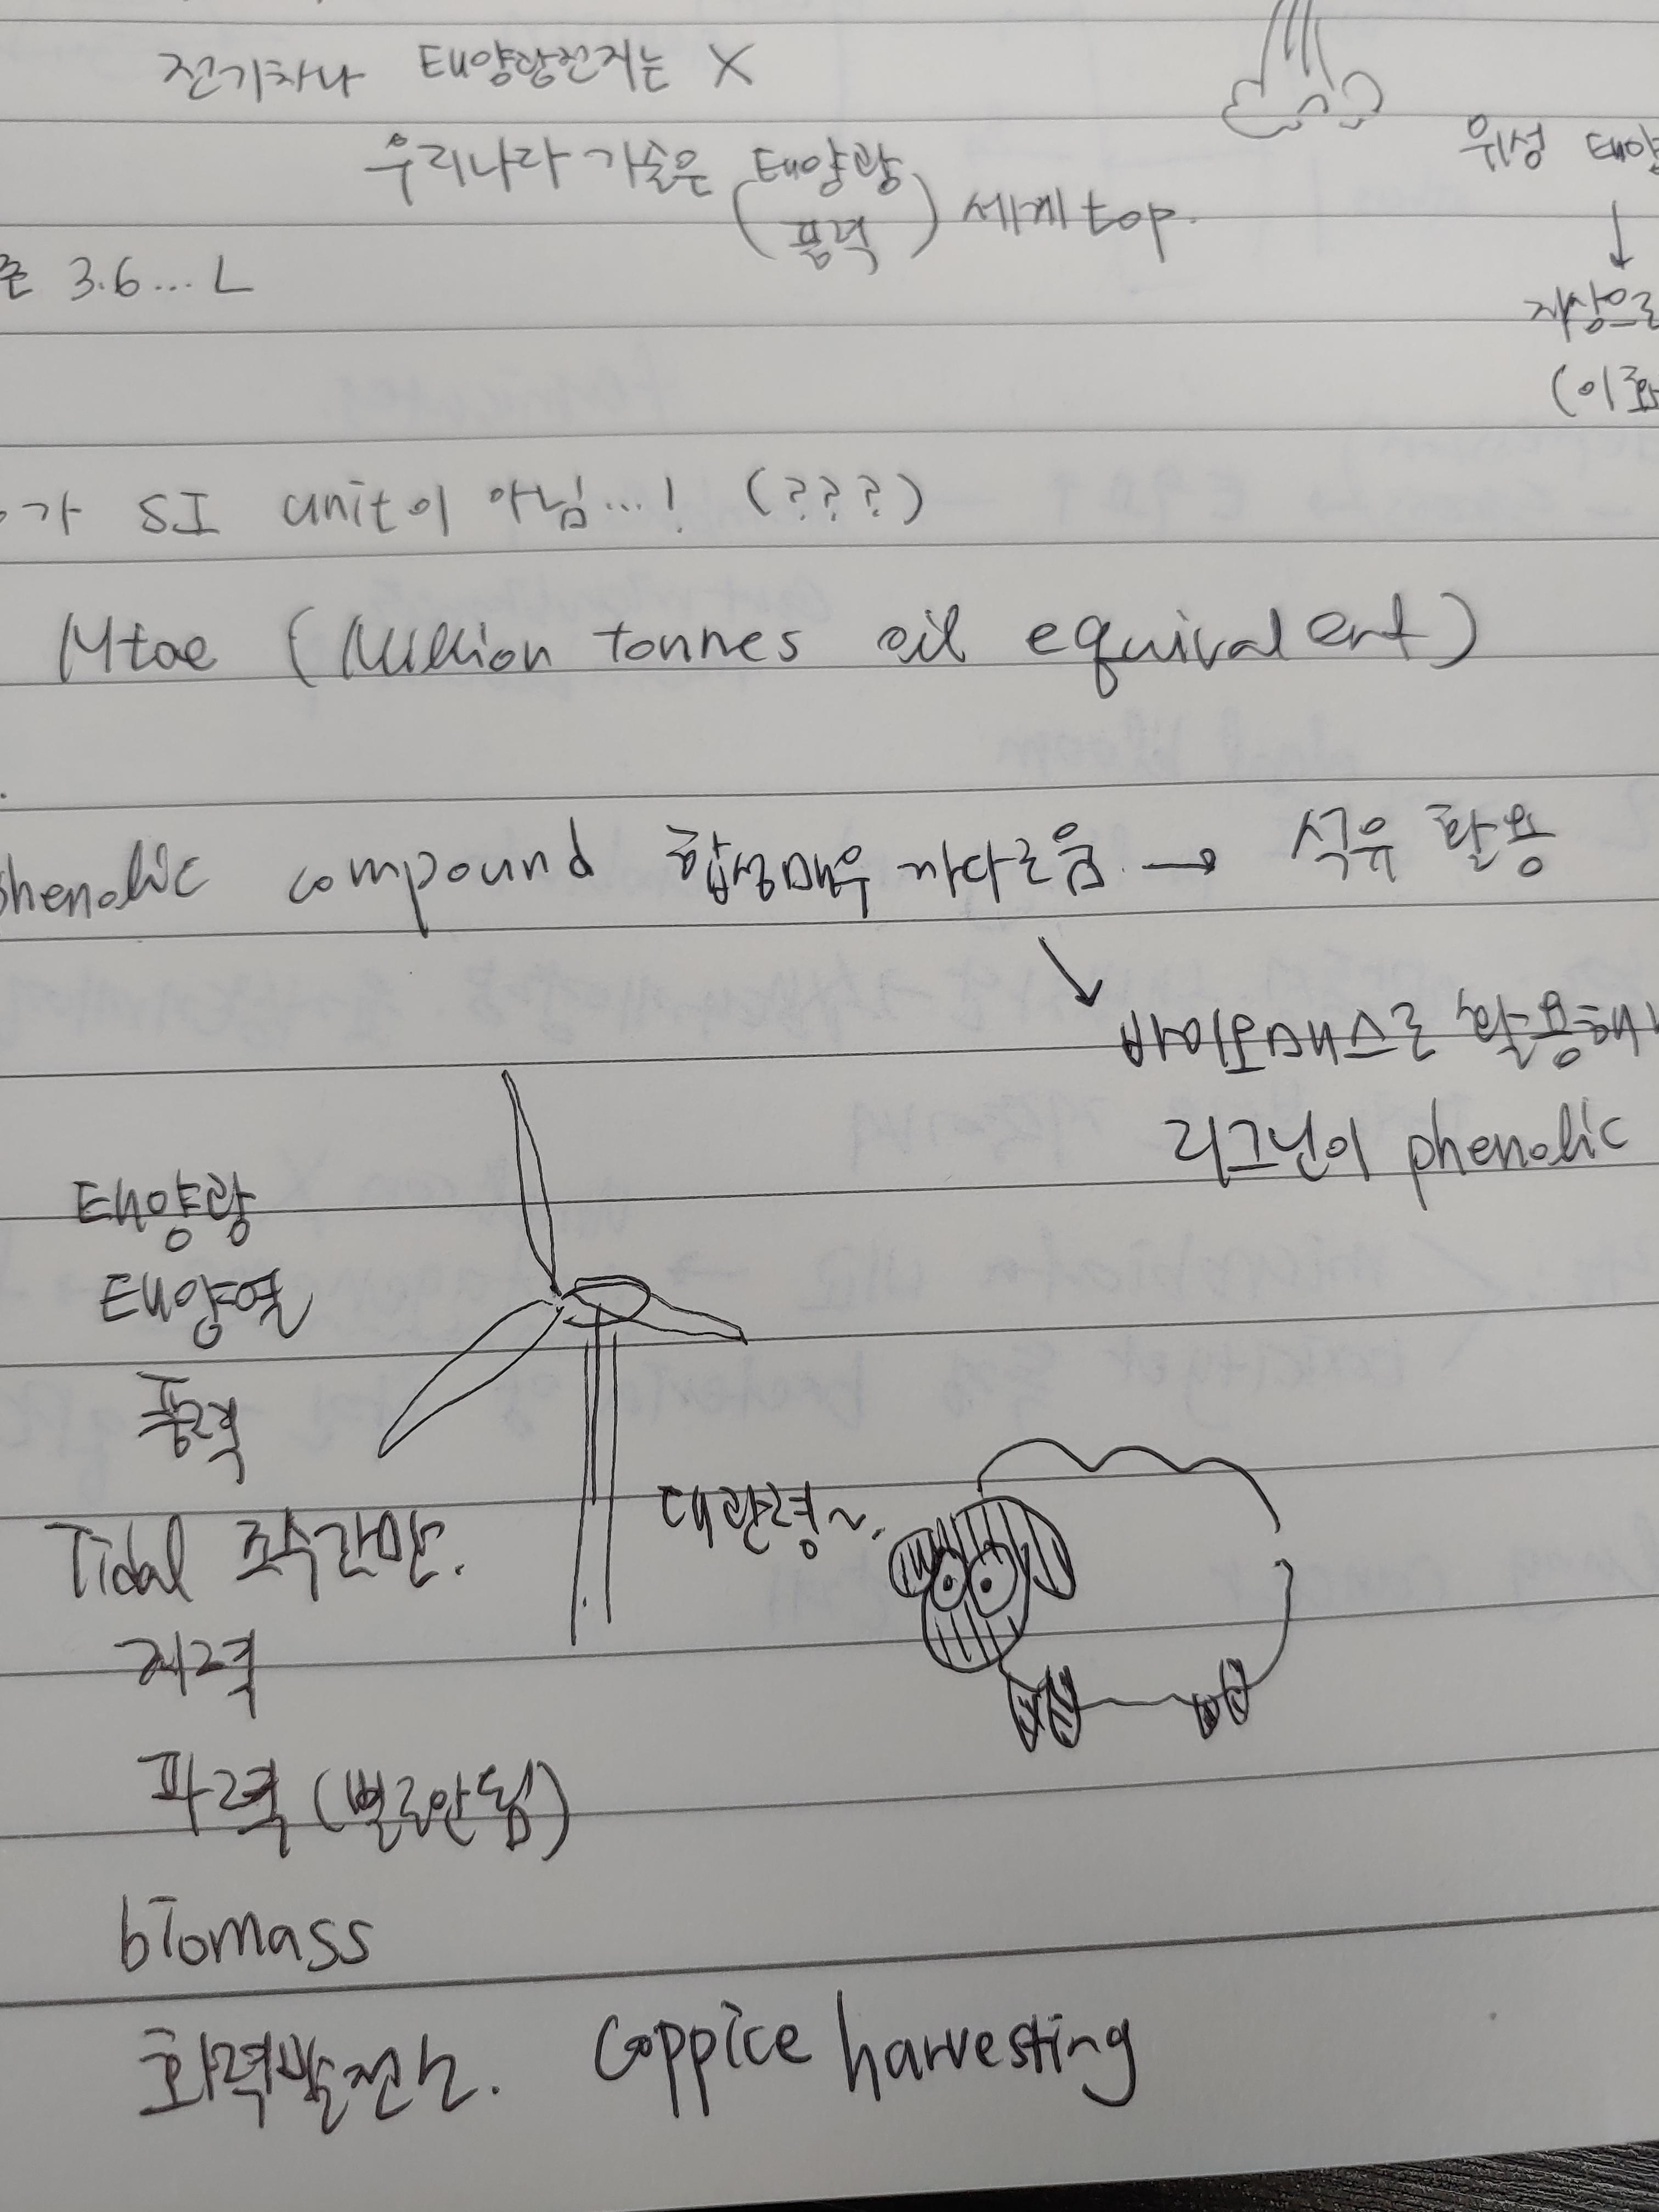 전기차나 태양광전지는 X
우리나라 기술은 (태양광 풍력) 세계 top.
위성 태양
↓
지상으로
3.6...L
가 SI unit이 아님...! (???)
Mtoe (Million tonnes oil equivalent)
phenolic compound 합성매우 까다로움. → 석유 활용
↘
바이오매스로 활용해
리그닌이 phenolic
태양광
태양열
풍력
대관령~,
Tidal 조수간만.
지력
파력 (별로안됨)
biomass
화력발전소.  Coppice harvesting